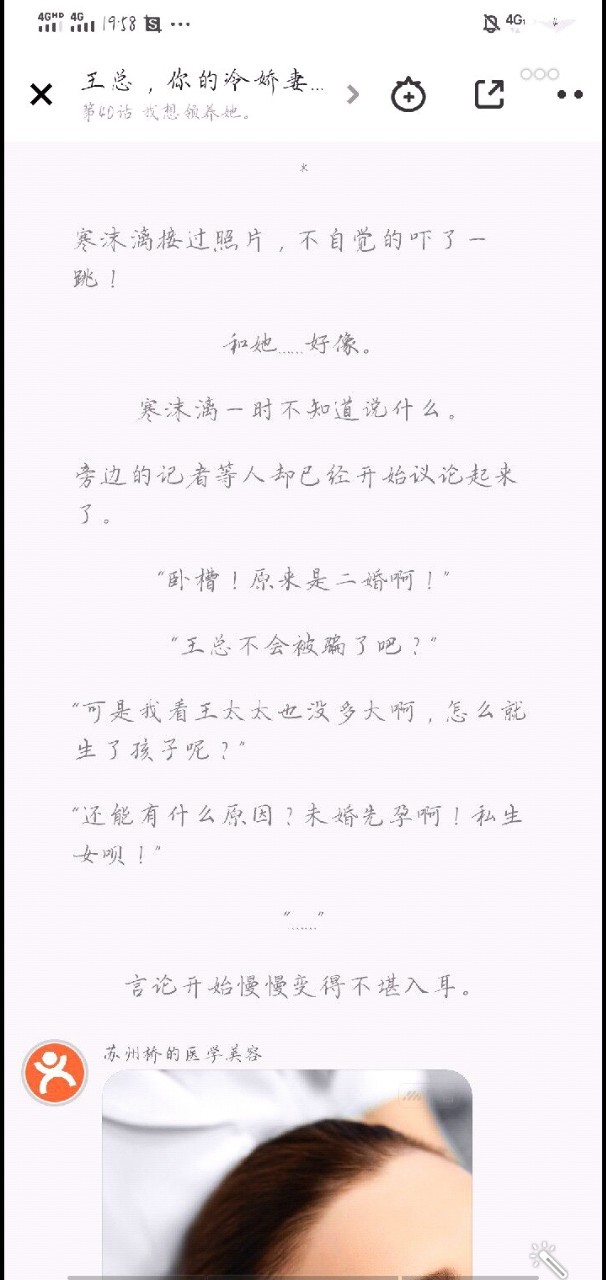 4GHD 4G 19:58 S ...
4G
王总，你的冷娇妻...
第40话 我想领养她。
寒沫漓接过照片，不自觉的吓了一
跳！
和她……好像。
寒沫漓一时不知道说什么。
旁边的记者等人却已经开始议论起来
了。
“卧槽！原来是二婚啊！”
“王总不会被骗了吧？”
“可是我看王太太也没多大啊，怎么就
生了孩子呢？”
“还能有什么原因？未婚先孕啊！私生
女呗！”
“……”
言论开始慢慢变得不堪入耳。
苏州桥的医学美容